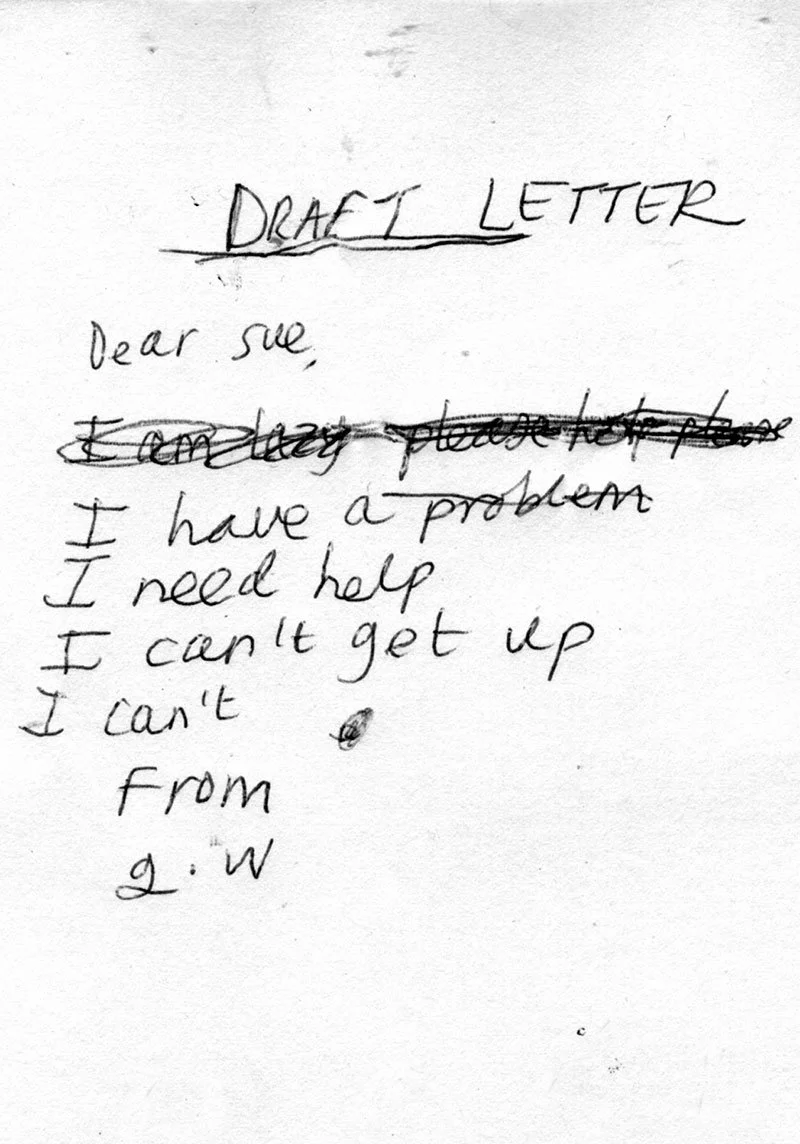 DRAFT LETTER
Dear Sue,
I am lazy please help please
I have a problem
I need help
I can't get up
I can't
From
g. W